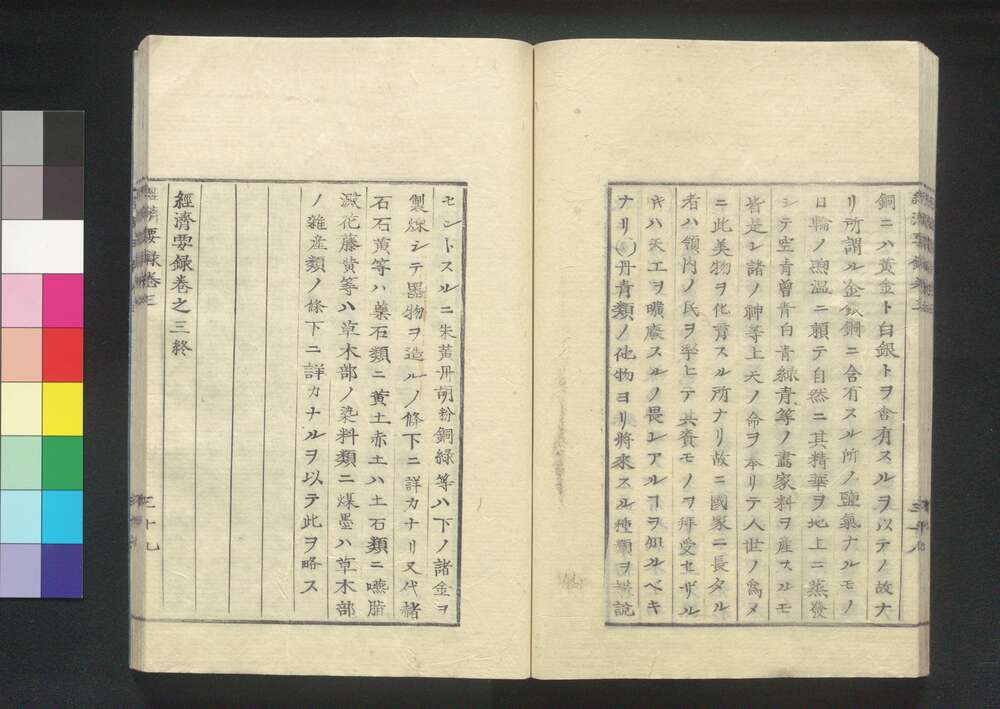 銅ニハ黄金ト白銀トヲ含有スルヲ以テノ故ナ
リ所謂ル金銀銅ニ含有スル所ノ鹽氣ナルモノ
日輪ノ温ニ頼テ自然ニ其精華ヲ地上ニ蒸發
シテ空青曾青白青緑青等ノ畫家料ヲ産スルモ
皆是レ諸ノ神等上天ノ命ヲ奉リテ人世ノ爲メ
ニ此美物ヲ化育スル所ナリ故ニ國家ニ長タル
者ハ領内ノ民ヲ擧ヒテ其賚モノヲ拜受セザル
キハ天工ヲ曠廢スルノ畏レアルヿヲ知ルベキ
ナリ丹青類ノ他物ヨリ將來スル種類ヲ説
セントスルニ朱黄丹胡粉銅緑等ハ下ノ諸金ヲ
製煉シテ器物ヲ造ルノ條下ニ詳カナリ又代赭
石石黄等ハ藥石類ニ黄土赤土ハ土石類ニ嚥脂
澱花藤黄等ハ草木部ノ染料類ニ煤墨ハ草木部
ノ雜産類ノ條下ニ詳カナルヲ以テ此ヲ略ス
經濟要録巻之三終
三十九